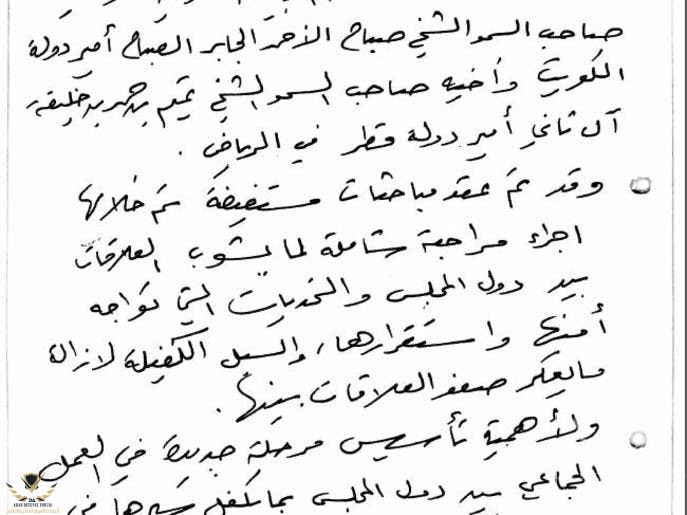 صاحب السمو الشيخ صباح الأحمد الجابر الصباح أمير دولة
الكويت وأخيه صاحب السمو الشيخ تميم بن حمد بن خليفة
آل ثاني أمير دولة قطر في الرياض .
وقد تم عقد مباحثات مستفيضة تم خلالها
اجراء مراجعة شاملة لما يشوب العلاقات
بين دول المجلس والتحديات التي تواجه
أمنها واستقرارها، والسبل الكفيلة لازالة
ما يعكر صفو العلاقات بينها.
ولأهمية تأسيس مرحلة جديدة في العمل
الجماعي بين دول المجلس بما يكفل سيرها في
ARAB DEFENSE FORUM